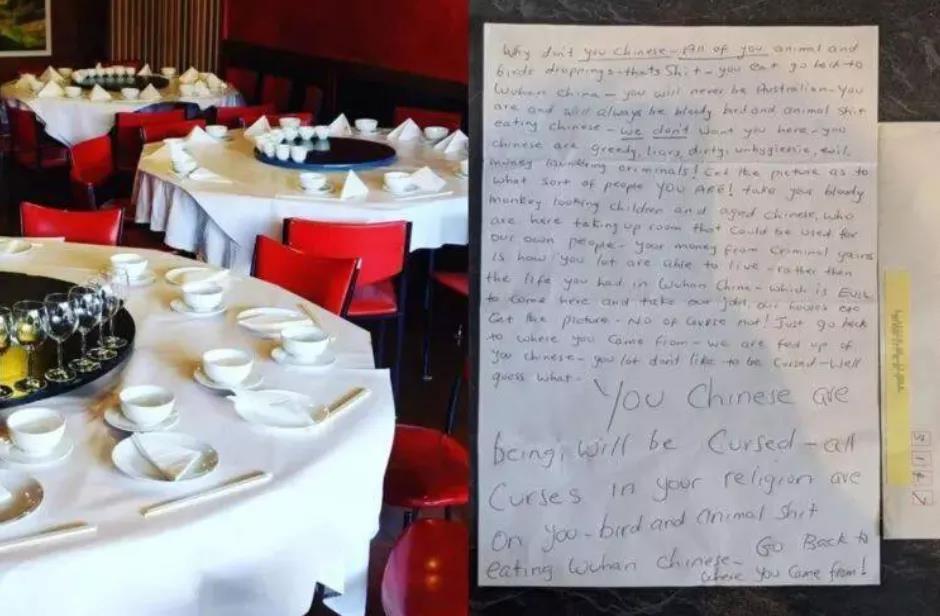 Why don't you Chinese - All of you animal and
birds droppings - thats Shit - you eat go back to
Wuhan China - you will never be Australian - You
are and will always be bloody bird and animal shit
eating chinese - we don't want you here - you
chinese are greedy, liars, dirty, unhygienic, evil,
money laundring criminals! Get the picture as to
what sort of people YOU ARE! take your bloody
monkey looking children and aged chinese, who
are here taking up room that could be used for
our own people - your money from criminal gains
is how you lot are able to live - rather then
the life you had in Wuhan China - which is EVIL
to come here and take our jobs, our houses etc
Get the picture - NO of course not! Just go back
to where you came from - we are fed up of
you chinese - you lot dont like to be Cursed - Well
guess what -
You Chinese are
being, will be Cursed - all
Curses in your religion are
On you - bird and animal shit
eating Wuhan Chinese - Go Back to
where you came from!